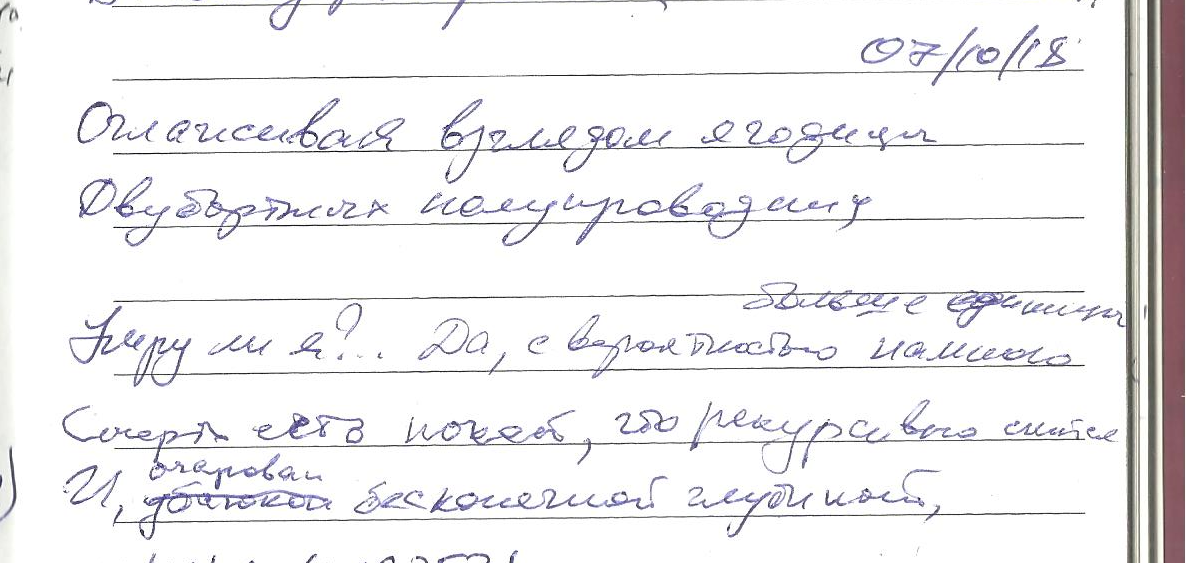 07/10/18
Оглаживая взглядом ягодицы
Двубортных полупроводниц
больше единицы!
Умру ли я?.. Да, с вероятностью намного
Смерть есть покой, что рекурсивно снится
очарован
И, убаюкан бесконечной глубиной,